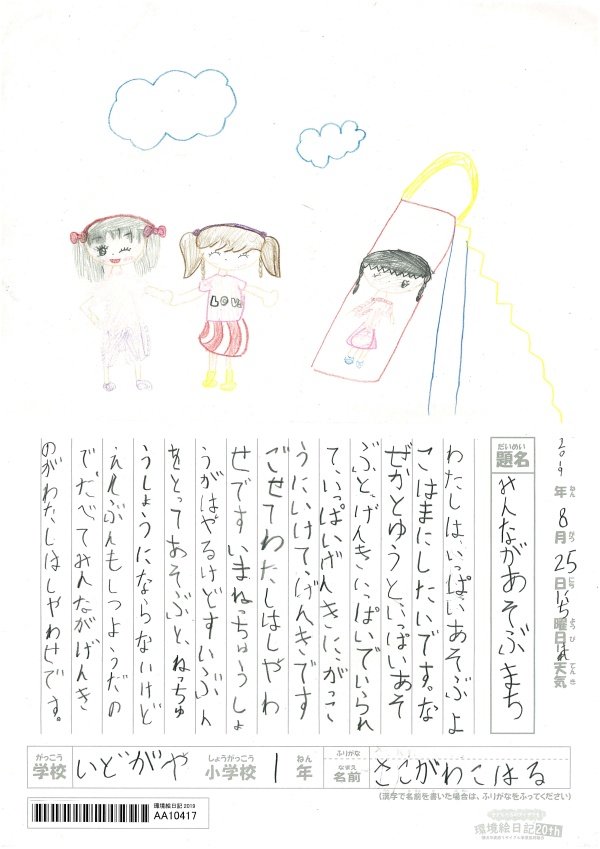 2019年8月25日にち曜日はれ天気
ねん がつ にち ようび てんき
だいめい
題名
みんながあそぶまち
わたしは、いっぱいあそぶよ
こはまにしたいです。な
ぜかとゆうといっぱいあそ
ぶと、げんきいっぱいでいられ
て、いっぱいげんきに、がっこ
うにいけて、げんきです
ごせてわたしはしやわ
せです。いまねっちゅうしょ
うがはやるけどすいぶん
をとってあそぶと、ねっちゅ
うしょうにならないけど
えんぶんもしつようだの
で、たべてみんながげんき
のがわたしはしやわせです。
がっこう しょうがっこう ねん ふりがな
学校 いどがや 小学校 1年 なまえ 名前 さこがわこはる
(漢字で名前を書いた場合は、ふりがなをふってください)
環境絵日記 2019
AA10417
環境絵日記20th